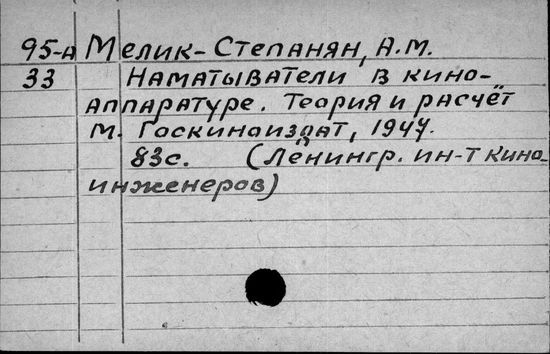 95-А Мелик-Степанян, А.М.
33 Наматыватели в кино-
аппаратуре. Теория и расчёт
М. Госкиноиздат, 1947.
83с. (Ленингр. ин-т кино-
инженеров)